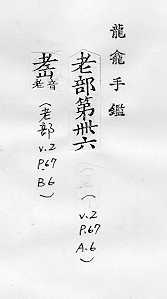 龍龕手鑑
老部第卅六
(v.2
P.67
A.6)
音老
(老部
v.2
P.67
B.6)